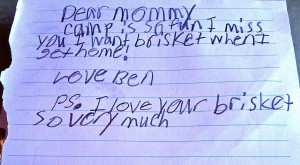 Dear mommy
camp is so fun I miss
you I want brisket when I
get home!
Love Ben
PS. I love your brisket
so very much